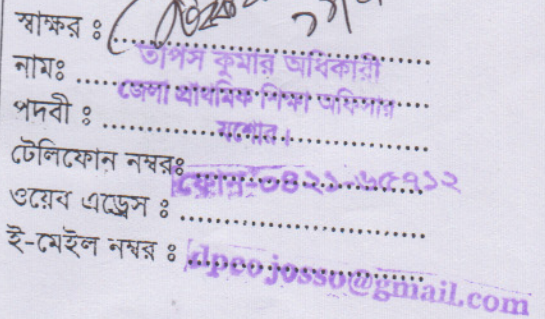 স্বাক্ষর ঃ
নামঃ তাপস কুমার অধিকারী
পদবী ঃ জেলা প্রাথমিক শিক্ষা অফিসার
যশোর।
টেলিফোন নম্বরঃ ফোন-০৪২১-৬৫৭১২
ওয়েব এড্রেস ঃ
ই-মেইল নম্বর ঃ dpeojosso@gmail.com